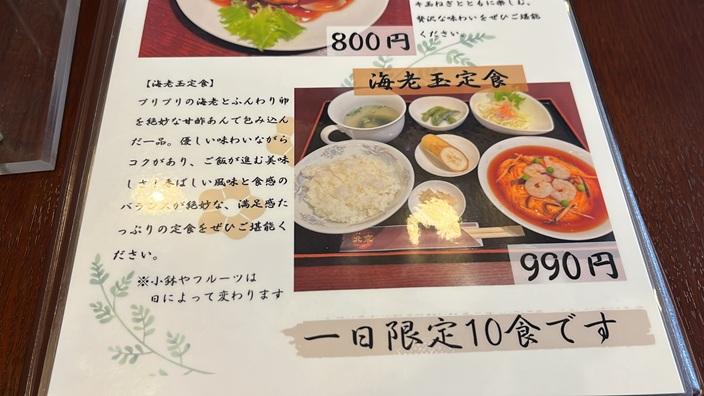 キ玉ねぎとともに楽しむ、
贅沢な味わいをぜひご堪能
ください。
800円
海老玉定食
【海老玉定食】
プリプリの海老とふんわり卵
を絶妙な甘酢あんで包み込ん
だ一品。優しい味わいながら
コクがあり、ご飯が進む美味
しさ！香ばしい風味と食感の
バランスが絶妙な、満足感た
っぷりの定食をぜひご堪能く
ださい。
※小鉢やフルーツは
日によって変わります
北京
990円
一日限定10食です